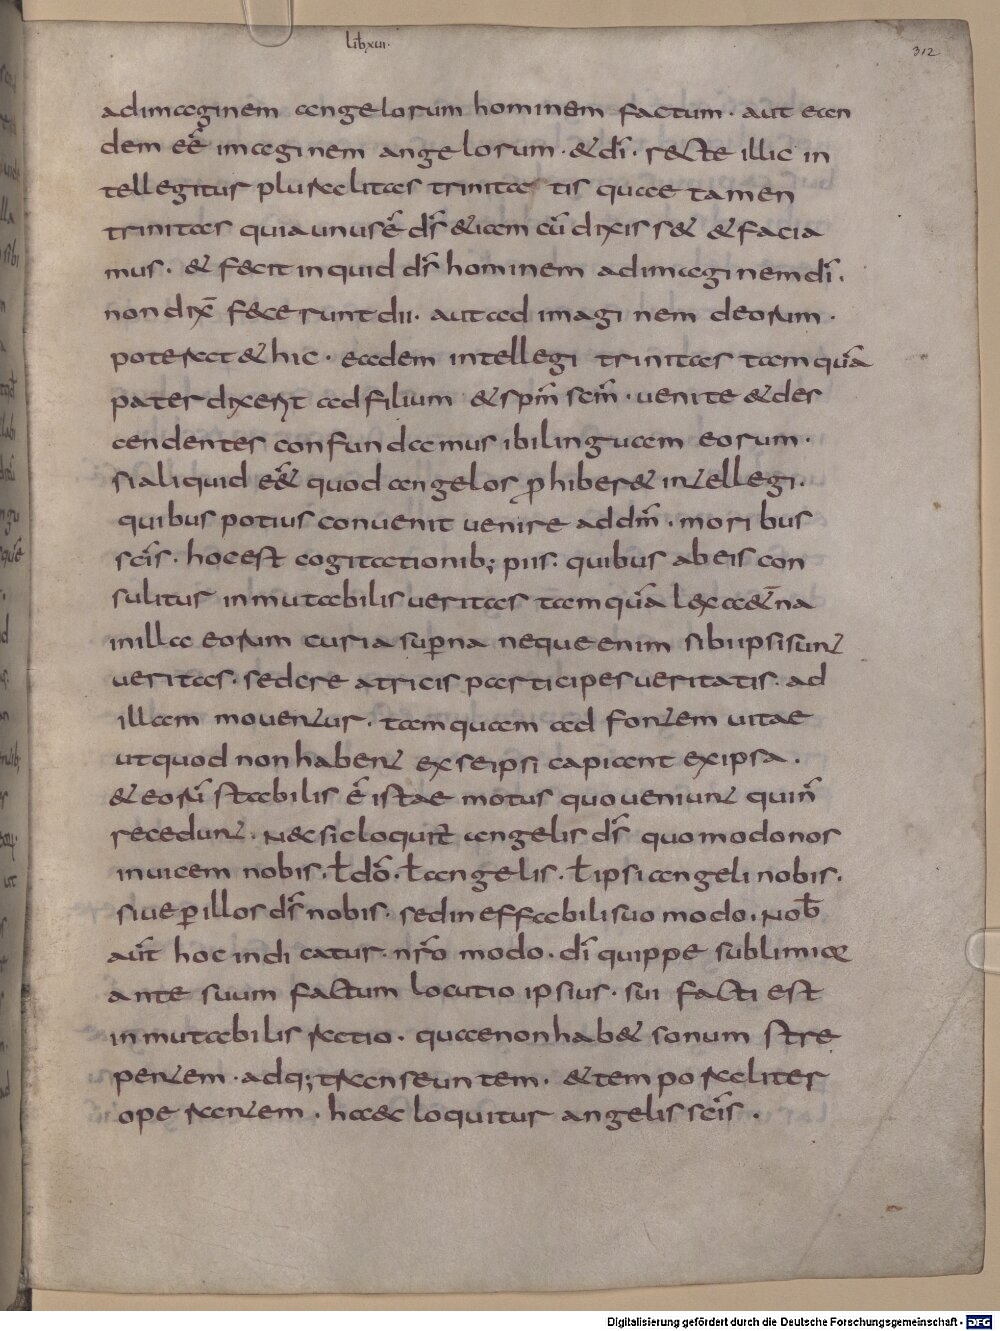 lib xui.
312
adimaginem angelorum hominem factum. aut ean
dem eē imaginem angelorum. & dī. recte illic in
tellegitur pluralitas trinitatis quae tamen
trinitas quia unus ē ds̄ & iam cū dixisset & facia
mus. & fecit inquid ds̄ hominem adimaginem dī.
non dix̄ fecerunt dii. aut ad imaginem deorum.
poterat & hic. eadem intellegi trinitas tamquā
pater dixerit ad filium & spm̄ scm̄. uenite & des
cendentes confundamus ibi linguam eorum.
si aliquid eēt quod angelos ꝓhiber& intellegi.
quibus potius conuenit uenire ad dm̄. moribus
scīs. hoc est cogitationib; piis. quibus ab eis con
sulitur inmutabilis ueritas tamquā lex aet̄na
in illa eorum curia suꝑna neque enim sibi ipsi sunt
ueritas. sed creatricis participes ueritatis. ad
illam mouentur. tamquam ad fontem uitae
ut quod non habent ex se ipsi capiant ex ipsa.
& eorū stabilis ē iste motus quo ueniunt qui n̄
recedunt. Nec sic loquit̄ angelis ds̄ quomodo nos
inuicem nobis. ł dō. ł angelis. ł ipsi angeli nobis.
siue ꝑ illos ds̄ nobis. sed ineffabili suo modo. Nob̄
aūt hoc indicatur. nr̄o modo. dī quippe sublimior
ante suum factum locutio ipsius. sui facti est
inmutabilis ratio. quae non hab& sonum stre
pentem. adq; transeuntem. & temporaliter
operantem. haec loquitur angelis scīs.
Digitalisierung gefördert durch die Deutsche Forschungsgemeinschaft - DFG